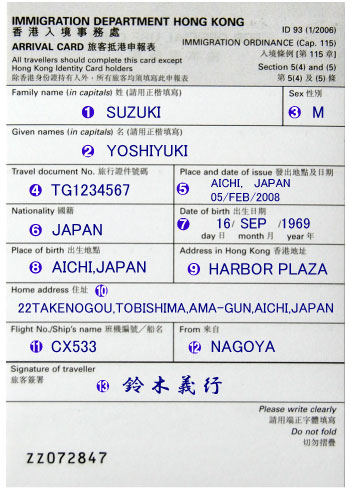 IMMIGRATION DEPARTMENT HONG KONG
香港入境事務處
ID 93 (1/2006)
ARRIVAL CARD 旅客抵港申報表
IMMIGRATION ORDINANCE (Cap. 115)
入境條例 (第 115 章)
All travellers should complete this card except
Hong Kong Identity Card holders
Section 5(4) and (5)
除香港身份證持有人外，所有旅客均須填寫此申報表
第 5(4) 及 (5) 條
Family name (in capitals) 姓 (請用正楷填寫)
Sex 性別
① SUZUKI
③ M
Given names (in capitals) 名 (請用正楷填寫)
② YOSHIYUKI
Travel document No. 旅行證件號碼
Place and date of issue 發出地點及日期
④ TG1234567
⑤ AICHI, JAPAN
05/FEB/2008
Nationality 國籍
Date of birth 出生日期
⑥ JAPAN
⑦ 16/ SEP /1969
day 日 month 月 year 年
Place of birth 出生地點
Address in Hong Kong 香港地址
⑧ AICHI,JAPAN
⑨ HARBOR PLAZA
Home address 住址 ⑩
22TAKENOGOU,TOBISHIMA,AMA-GUN,AICHI,JAPAN
Flight No./Ship's name 班機編號／船名
From 來自
⑪ CX533
⑫ NAGOYA
Signature of traveller
旅客簽署
⑬ 鈴木義行
Please write clearly
請用端正字體填寫
Do not fold
切勿摺疊
ZZ072847